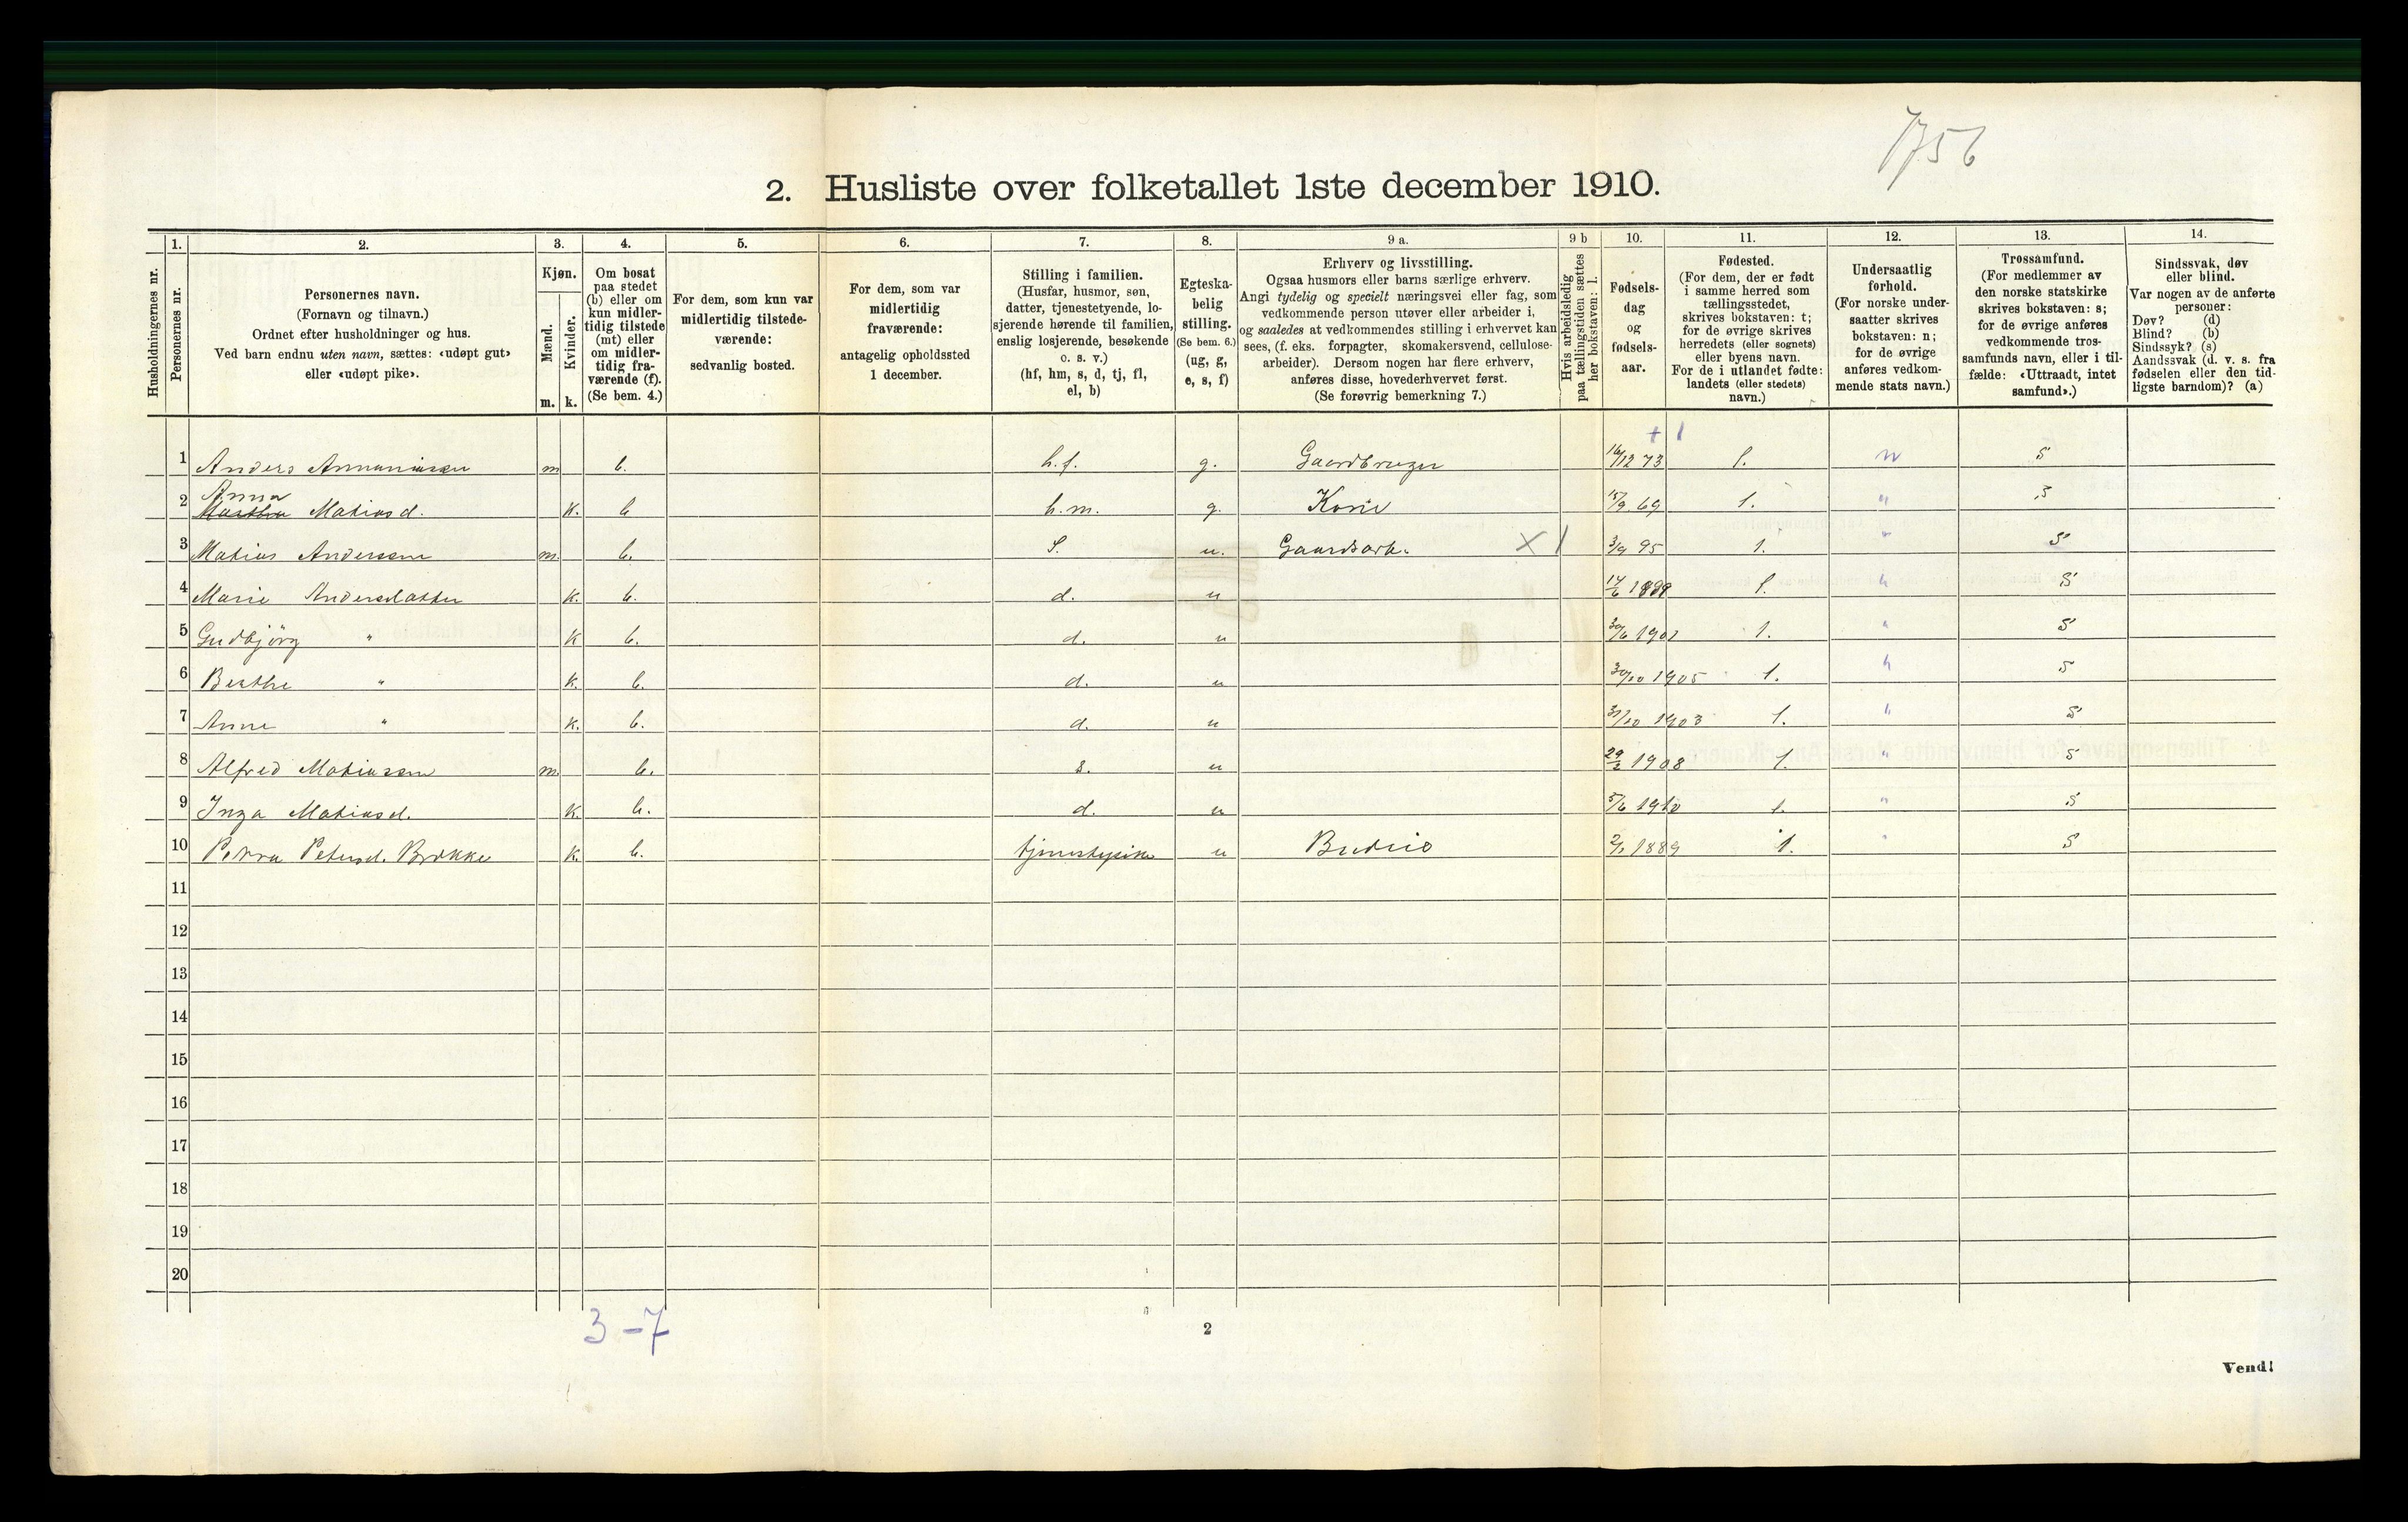 1756
2. Husliste over folketallet 1ste december 1910.
Husholdningernes nr.
1. Personernes nr.
2. Personernes navn. (Fornavn og tilnavn.) Ordnet efter husholdninger og hus. Ved barn endnu uten navn, sættes: «udøpt gut» eller «udøpt pike».
3. Kjøn. Mænd. m. Kvinder. k.
4. Om bosat paa stedet (b) eller om kun midlertidig tilstede (mt) eller om midlertidig fraværende (f). (Se bem. 4.)
5. For dem, som kun var midlertidig tilstedeværende: sedvanlig bosted.
6. For dem, som var midlertidig fraværende: antagelig opholdssted 1 december.
7. Stilling i familien. (Husfar, husmor, søn, datter, tjenestetyende, losjerende hørende til familien, enslig losjerende, besøkende o. s. v.) (hf, hm, s, d, tj, fl, el, b)
8. Egteskabelig stilling. (Se bem. 6.) (ug, g, e, s, f)
9 a. Erhverv og livsstilling. Ogsaa husmors eller barns særlige erhverv. Angi tydelig og specielt næringsvei eller fag, som vedkommende person utøver eller arbeider i, og saaledes at vedkommendes stilling i erhvervet kan sees, (f. eks. forpagter, skomakersvend, cellulosearbeider). Dersom nogen har flere erhverv, anføres disse, hovederhvervet først. (Se forøvrig bemerkning 7.)
9 b Hvis arbeidsledig paa tællingstiden sættes her bokstaven: l.
10. Fødselsdag og fødselsaar.
11. Fødested. (For dem, der er født i samme herred som tællingsstedet, skrives bokstaven: t; for de øvrige skrives herredets (eller sognets) eller byens navn. For de i utlandet fødte: landets (eller stedets) navn.)
12. Undersaatlig forhold. (For norske undersaatter skrives bokstaven: n; for de øvrige anføres vedkommende stats navn.)
13. Trossamfund. (For medlemmer av den norske statskirke skrives bokstaven: s; for de øvrige anføres vedkommende trossamfunds navn, eller i tilfælde: «Uttraadt, intet samfund».)
14. Sindssvak, døv eller blind. Var nogen av de anførte personer: Døv? (d) Blind? (b) Sindssyk? (s) Aandssvak (d. v. s. fra fødselen eller den tidligste barndom)? (a)
1 Anders m b. h.f. g. Gaardbruger 16/12 73 n s
2 Anna Matiasd. k. b h.m. g. Kone 15/9 69 " s
3 Matias Anderssen m. b. S. u. Gaardsarb. X 3/9 95 " s
4 Marie Andersdatter k. b. d. u " s
5 Gudbjörg " k b. d. u 30/6 1901 " s
6 Berthe " k. b. d. u 30/10 1905 " s
7 Anne " k. b. d. u 31/10 1903 " s
8 Alfred Matiassen m. b. s. u 1908 " s
9 Inga Matiasd. k. b. d. u 5/6 1910 " s
10 Petra Petersd. k. b. tjenestepike u Budeie 1889 " s
11
12
13
14
15
16
17
18
19
20
3-7
2
Vend!